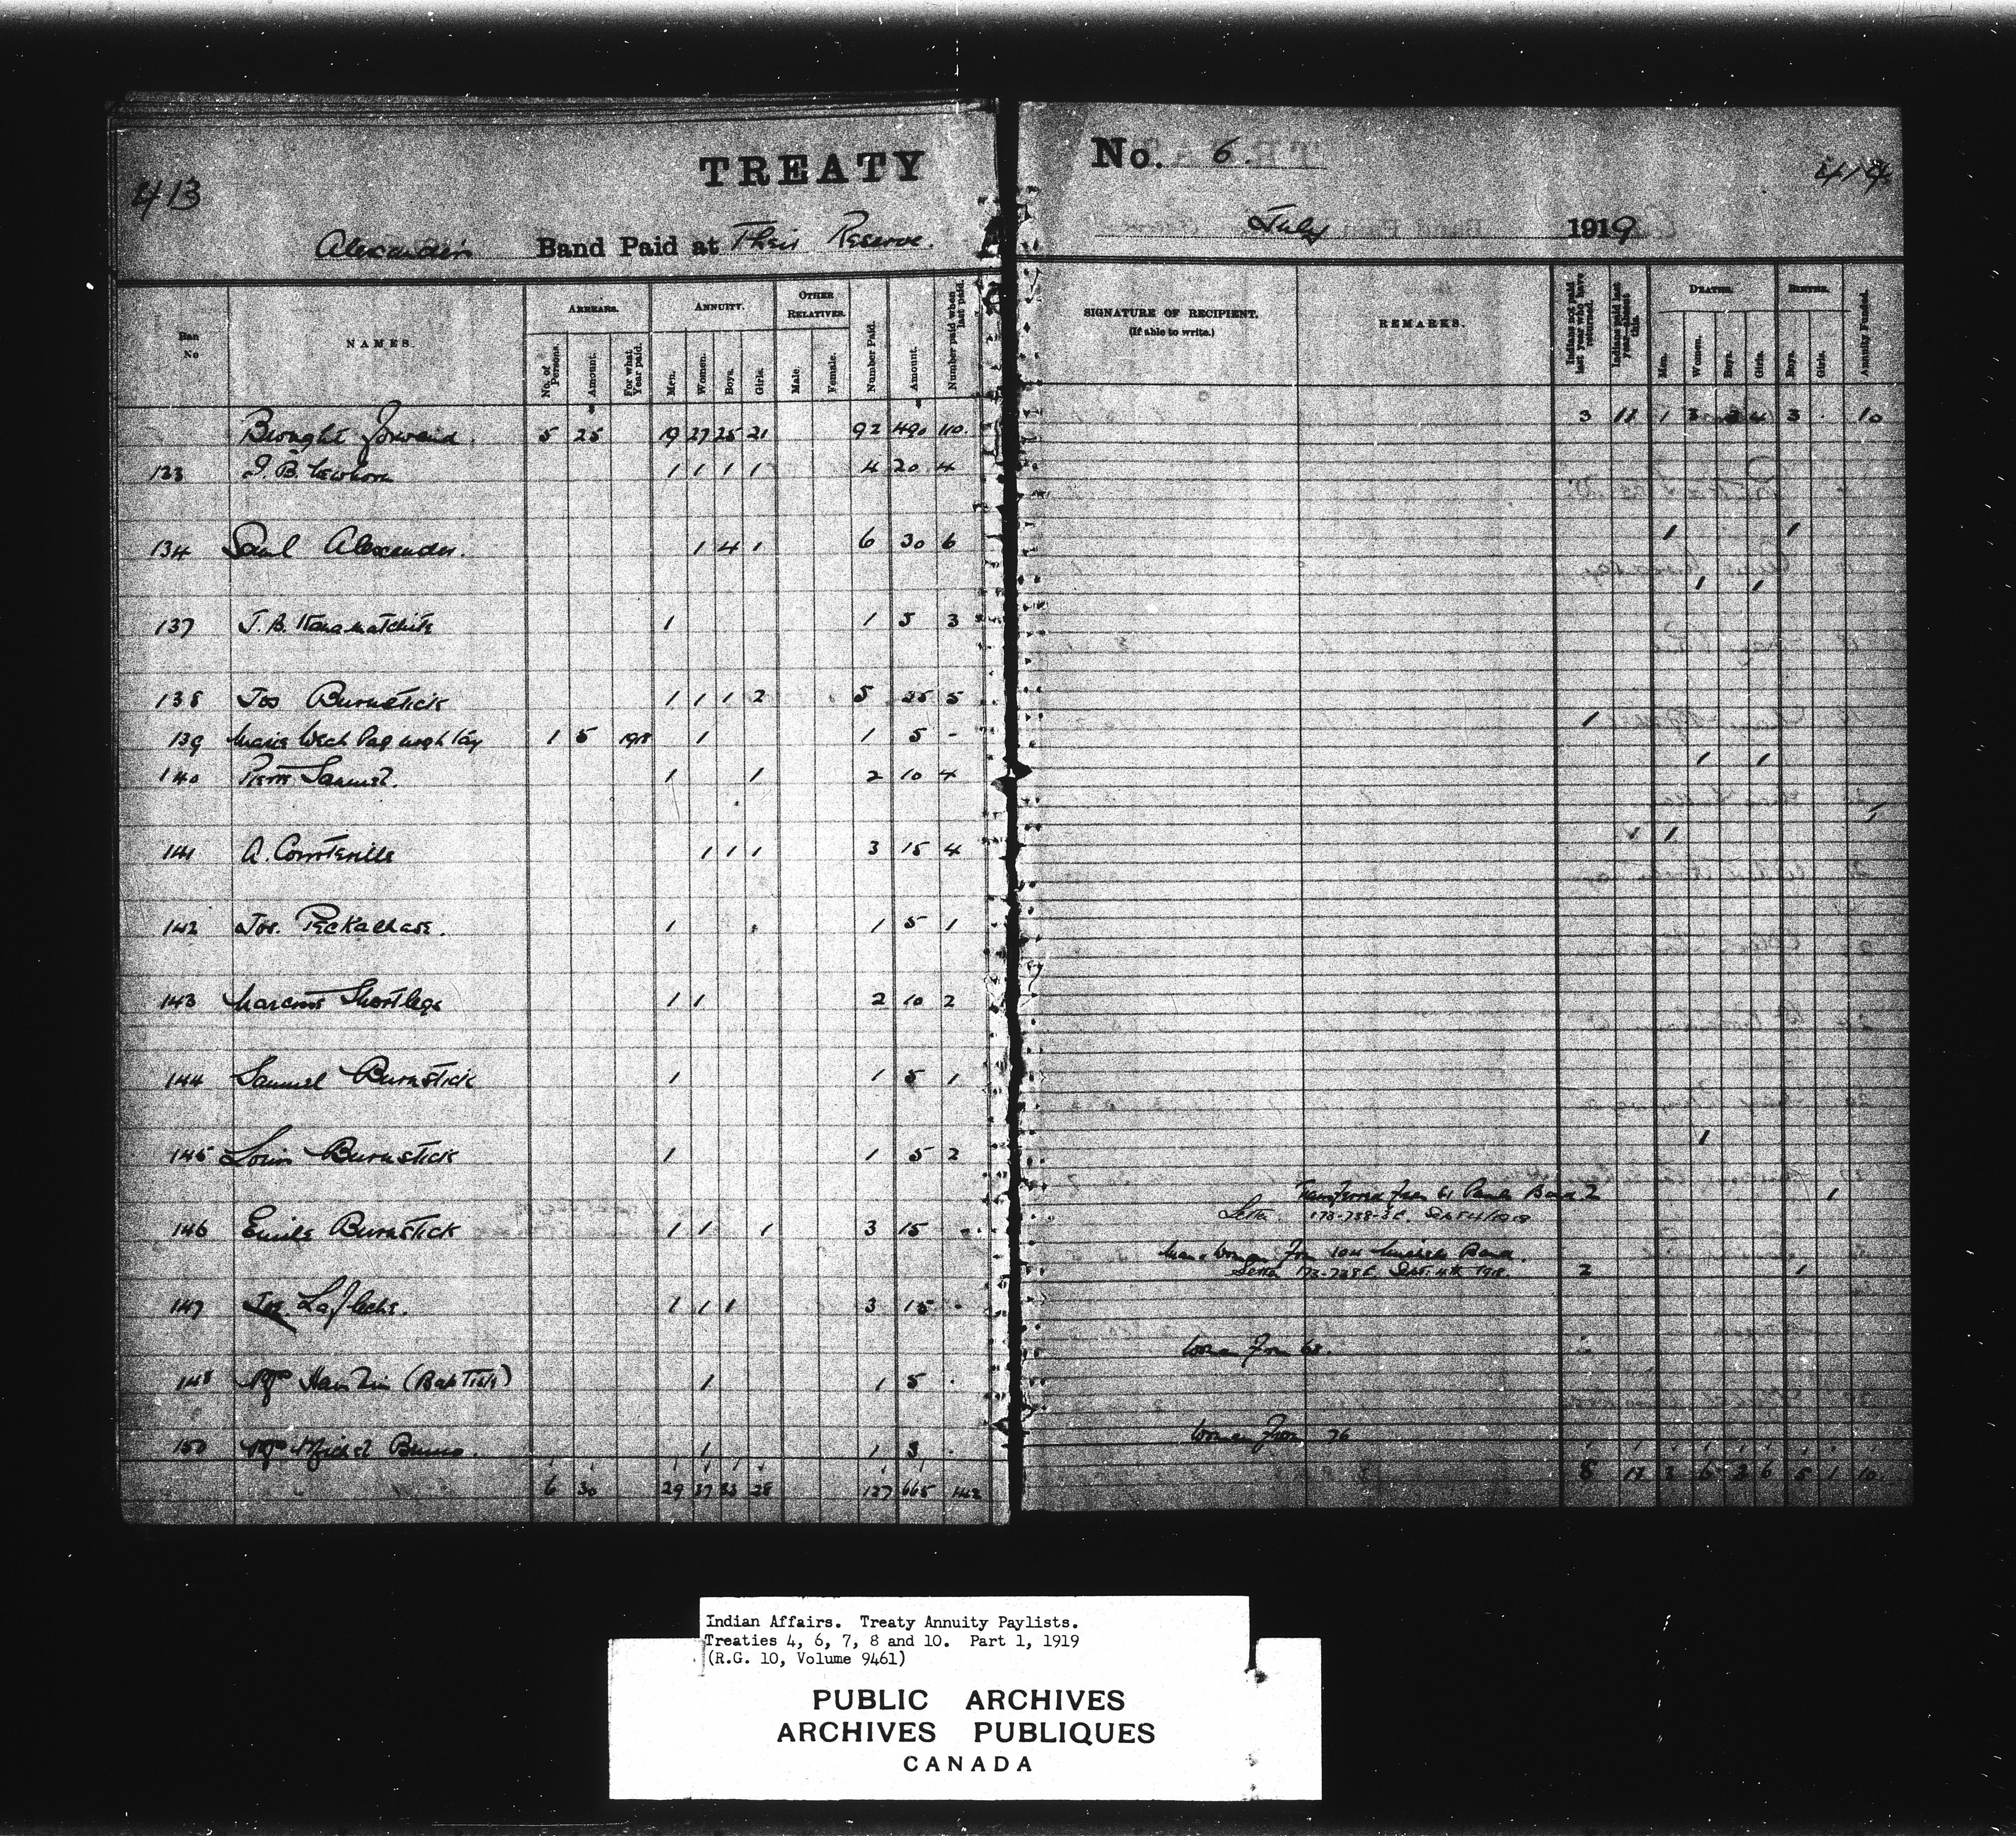 413
TREATY
No. 6.
414
Alexander's Band Paid at Their Reserve.
July 1919
Ban No
NAMES.
ARREARS.
No. of Persons.
Amount.
For what Year paid.
ANNUITY.
Men.
Women.
Boys.
Girls.
OTHER RELATIVES.
Male.
Female.
Number Paid.
Amount.
Number paid when last paid.
SIGNATURE OF RECIPIENT.
(If able to write.)
REMARKS.
Indians not paid last year who have returned.
Indians paid last year absent this.
DEATHS.
Men.
Women.
Boys.
Girls.
BIRTHS.
Boys.
Girls.
Annuity Funded.
Brought forward. 5 25 19 27 25 21 92 490 110. 3 18 1 3 2 4 3 10
133 J. B. 1 1 1 1 4 20 4
134 Paul Alexander. 1 4 1 6 30 6 1 1
137 J. B. 1 1 5 3 1 1
138 Jos Burnstick 1 1 1 2 5 25 5
139 Marie 1 5 1918 1 1 5 - 1
140 Pierre Samuel. 1 1 2 10 4 1 1
141 A. Courteorielle 1 1 1 3 15 4 1 5
142 Jos. 1 1 5 1
143 Shortlegs 1 1 2 10 2
144 Samuel Burnstick 1 1 5 1
145 Louis Burnstick 1 1 5 2 1
Transferred from St Pauls Band 2 1
Letter 173-738-3C. Sept 4/1918
146 Emile Burnstick 1 1 1 3 15
Man & Woman from Michels Band.
Letter Sept. 4th 1918. 2 1
147 Jos Lafleche. 1 1 1 3 15
Woman from 68.
148 (Baptiste) 1 1 5
Woman from 76
150 Bruno. 1 1 5
6 30 29 37 33 28 127 665 142 8 18 3 6 2 6 5 1 10
Indian Affairs. Treaty Annuity Paylists.
Treaties 4, 6, 7, 8 and 10. Part 1, 1919
(R.G. 10, Volume 9461)
PUBLIC ARCHIVES
ARCHIVES PUBLIQUES
CANADA